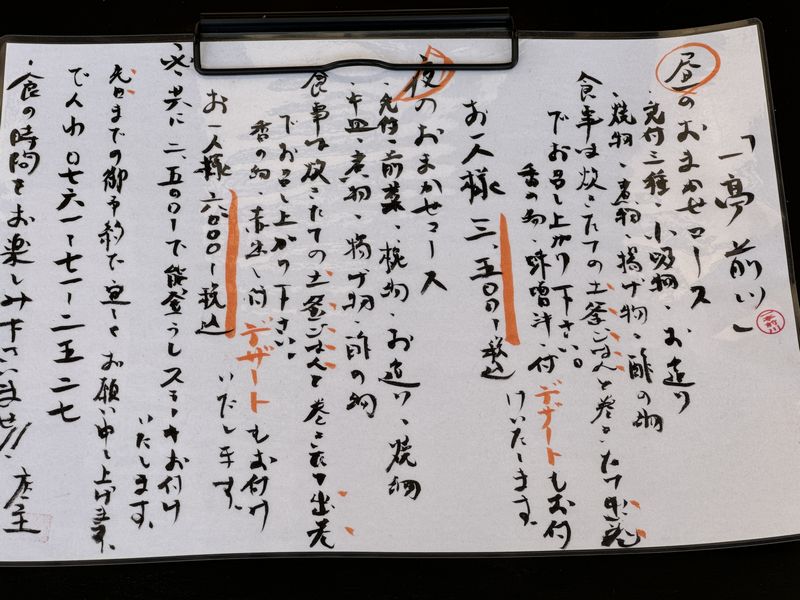 「一亭 前川」
昼のおまかせコース
・先付三種・小吸物・お造り
・焼物・煮物・揚げ物・酢の物
食事は炊きたての土釜ごはんと巻きたて出巻
でお召し上がり下さい。
香の物・味噌汁・付デザートもお付
けいたします。
お一人様 三、五〇〇ー税込
夜のおまかせコース
・先付・前菜・椀物・お造り・焼物
・中皿・煮物・揚げ物・酢の物
食事は炊きたての土釜ごはんと巻きたて出巻
でお召し上がり下さい。
香の物・赤出し付デザートもお付け
いたします。
お一人様 六、〇〇〇ー税込
共に二、五〇〇ーで能登うしステーキお付け
いたします。
先日までの御予約で宜しくお願い申し上げます。
〇七六一ー七一ー二五二七
・食の時間をお楽しみ下さいませ!!
店主